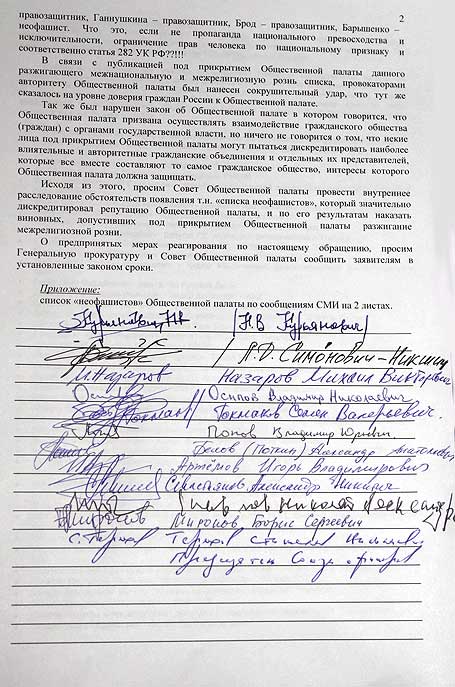 2
правозащитник, Ганнушкина – правозащитник, Брод – правозащитник, Барышенко –
неофашист. Что это, если не пропаганда национального превосходства и
исключительности, ограничение прав человека по национальному признаку и
соответственно статья 282 УК РФ??!!!
В связи с публикацией под прикрытием Общественной палаты данного
разжигающего межнациональную и межрелигиозную рознь списка, провокаторами
авторитету Общественной палаты был нанесен сокрушительный удар, что тут же
сказалось на уровне доверия граждан России к Общественной палате.
Так же был нарушен закон об Общественной палате в котором говорится, что
Общественная палата призвана осуществлять взаимодействие гражданского общества
(граждан) с органами государственной власти, но ничего не говорится о том, что некие
лица под прикрытием Общественной палаты могут пытаться дискредитировать наиболее
влиятельные и авторитетные гражданские объединения и отдельных их представителей,
которые все вместе составляют то самое гражданское общество, интересы которого
Общественная палата должна защищать.
Исходя из этого, просим Совет Общественной палаты провести внутреннее
расследование обстоятельств появления т.н. «списка неофашистов», который значительно
дискредитировал репутацию Общественной палаты, и по его результатам наказать
виновных, допустивших под прикрытием Общественной палаты разжигание
межрелигиозной розни.
О предпринятых мерах реагирования по настоящему обращению, просим
Генеральную прокуратуру и Совет Общественной палаты сообщить заявителям в
установленные законом сроки.
Приложение:
список «неофашистов» Общественной палаты по сообщениям СМИ на 2 листах.
Курьянович Н.В. (Н.В Курьянович)
А.Ф. Симонович-Никшич
М.Назаров Назаров Михаил Викторович
Осипов Владимир Николаевич
Токмаков Семен Валерьевич.
Попов Владимир Юрьевич
Белов (Поткин) Александр Анатольевич
Артёмов Игорь Владимирович
Севастьянов Александр Никитич
Николай Александр
Миронов Борис Сергеевич
С. Терехов Терехов Станислав Николаевич
Председатель Союза офицеров